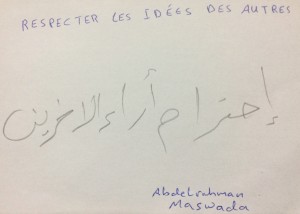 RESPECTER LES IDÉES DES AUTRES
إحترام أراء الاخرين
Abdelrahman
Maswada